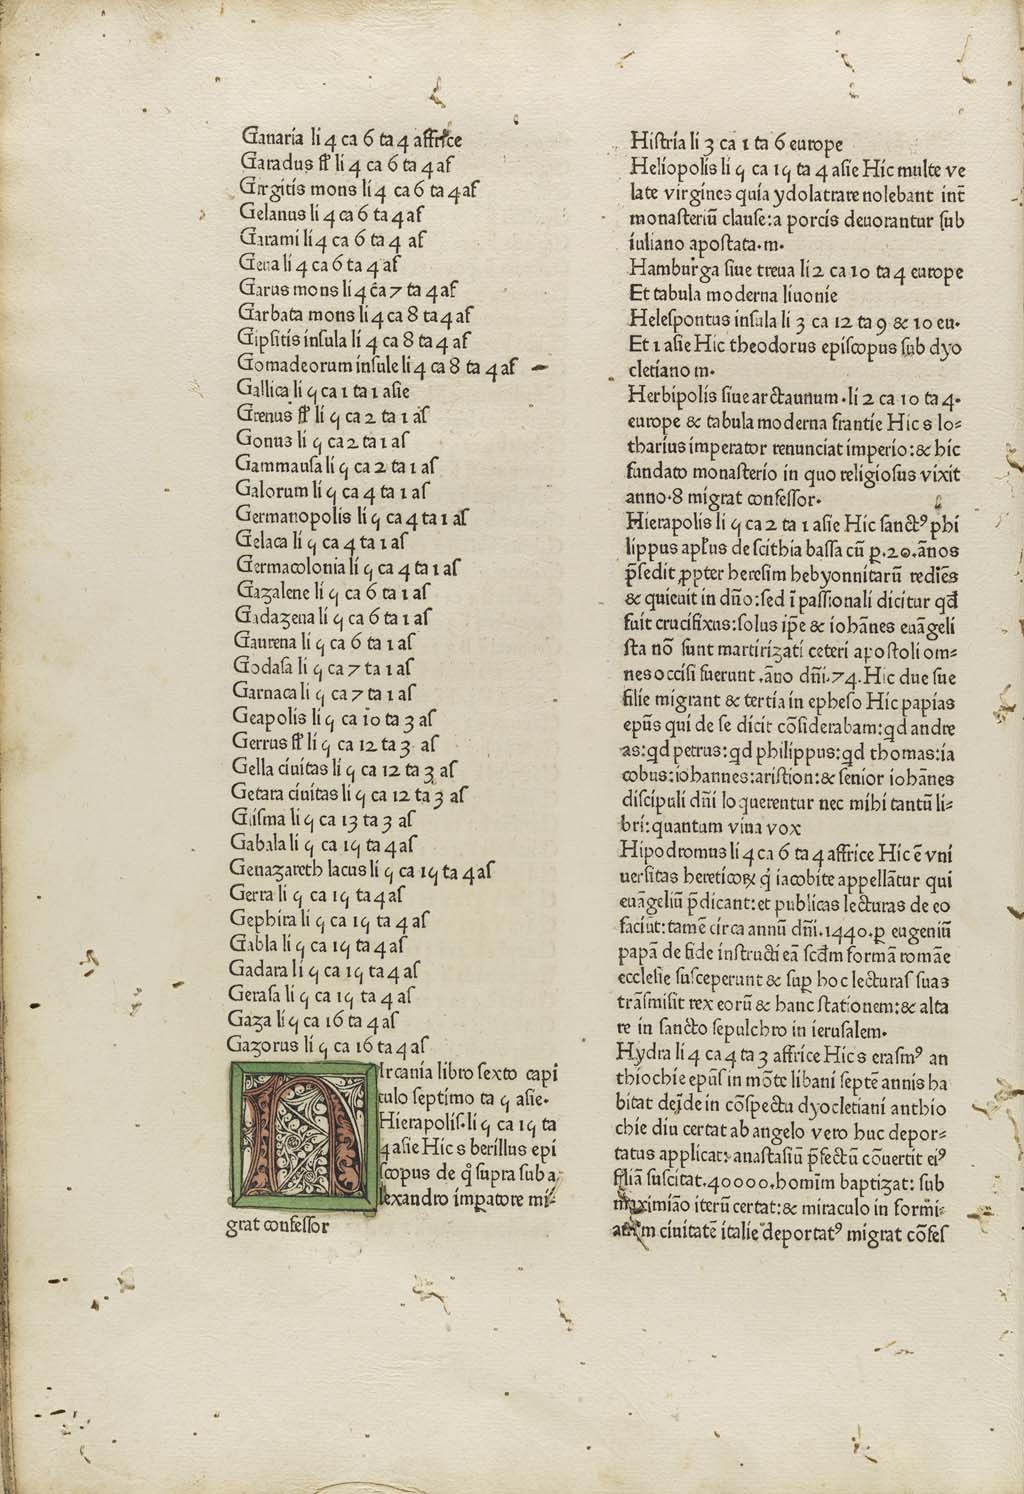 Ganaria li 4 ca 6 ta 4 affrice
Garadus fl' li 4 ca 6 ta 4 af
Girgitis mons li 4 ca 6 ta 4 af
Gelanus li 4 ca 6 ta 4 af
Garami li 4 ca 6 ta 4 af
Geua li 4 ca 6 ta 4 af
Garus mons li 4 ca 7 ta 4 af
Garbata mons li 4 ca 8 ta 4 af
Gipsitis insula li 4 ca 8 ta 4 af
Gomadeorum insule li 4 ca 8 ta 4 af
Gallica li 5 ca 1 ta 1 asie
Grenus fl' li 5 ca 2 ta 1 as
Gonus li 5 ca 2 ta 1 as
Gammausa li 5 ca 2 ta 1 as
Galorum li 5 ca 4 ta 1 as
Germanopolis li 5 ca 4 ta 1 as
Gelaca li 5 ca 4 ta 1 as
Germacolonia li 5 ca 4 ta 1 as
Gazalene li 5 ca 6 ta 1 as
Gadazena li 5 ca 6 ta 1 as
Gaurena li 5 ca 6 ta 1 as
Godasa li 5 ca 7 ta 1 as
Garnaca li 5 ca 7 ta 1 as
Geapolis li 5 ca 10 ta 3 as
Gerrus fl' li 5 ca 12 ta 3 as
Gella ciuitas li 5 ca 12 ta 3 as
Getara ciuitas li 5 ca 12 ta 3 as
Glisma li 5 ca 13 ta 3 as
Gabala li 5 ca 15 ta 4 as
Genazareth lacus li 5 ca 15 ta 4 as
Gerra li 5 ca 15 ta 4 as
Gephira li 5 ca 15 ta 4 as
Gabla li 5 ca 15 ta 4 as
Gadara li 5 ca 15 ta 4 as
Gerasa li 5 ca 15 ta 4 as
Gaza li 5 ca 16 ta 4 as
Gazorus li 5 ca 16 ta 4 as
Hircania libro sexto capi
tulo septimo ta 5 asie.
Hierapolis. li 5 ca 15 ta
4 asie Hic s berillus epi
scopus de q̄ supra sub a
lexandro imꝑatore mi-
grat confessor
Histria li 3 ca 1 ta 6 europe
Heliopolis li 5 ca 15 ta 4 asie Hic multe ve
late virgines quia ydolatrare nolebant int̄
monasteriū clause: a porcis deuorantur sub
iuliano apostata. m.
Hamburga siue treua li 2 ca 10 ta 4 europe
Et tabula moderna liuonie
Helespontus insula li 3 ca 12 ta 9 & 10 eu.
Et 1 asie Hic theodorus episcopus sub dyo
cletiano m.
Herbipolis siue arctaunum. li 2 ca 10 ta 4.
europe & tabula moderna frantie Hic s lo-
tharius imperator renunciat imperio: & hic
fundato monasterio in quo religiosus vixit
anno. 8 migrat confessor.
Hierapolis li 5 ca 2 ta 1 asie Hic sanctꝰ phi
lippus apl'us de scithia bassa cū ꝑ. 20. ānos
p̄sedit ꝓpter heresim hebyonnitarū rediēs
& quieuit in dn̄o: sed ī passionali dicitur qd̄
fuit crucifixus: solus ip̄e & iohānes euāgeli
sta nō sunt martirizati ceteri apostoli om-
nes occisi fuerunt. āno dn̄i. 74. Hic due sue
filie migrant & tertia in epheso Hic papias
epūs qui de se dicit cōsiderabam: qd andre
as: qd petrus: qd philippus: qd thomas: ia
cobus: iohannes: aristion: & senior iohānes
discipuli dn̄i loquerentur nec mihi tantū li-
bri: quantum viua vox
Hipodromus li 4 ca 6 ta 4 affrice Hic ē vni
uersitas hereticoꝝ q̄ iacobite appellātur qui
euāgeliū p̄dicant: et publicas lecturas de eo
faciūt: tamē circa annū dn̄i. 1440. ꝑ eugeniū
papā de fide instructi eā scd̄m formā romāe
ecclesie susceperunt & suꝑ hoc lecturas suas
trāsmisit rex eorū & hanc stationem: & alta
re in sancto sepulchro in ierusalem.
Hydra li 4 ca 4 ta 3 affrice Hic s erasmꝰ an
thiochie epūs in mōte libani septē annis ha
bitat deīde in cōspectu dyocletiani anthio
chie diu certat ab angelo vero huc depor-
tatus applicat: anastasiū p̄fectū cōuertit eiꝰ
filiā suscitat. 40000. homīm baptizat: sub
maximiāo iterū certat: & miraculo in formi-
anam ciuitatē italie deportatꝰ migrat cōfes